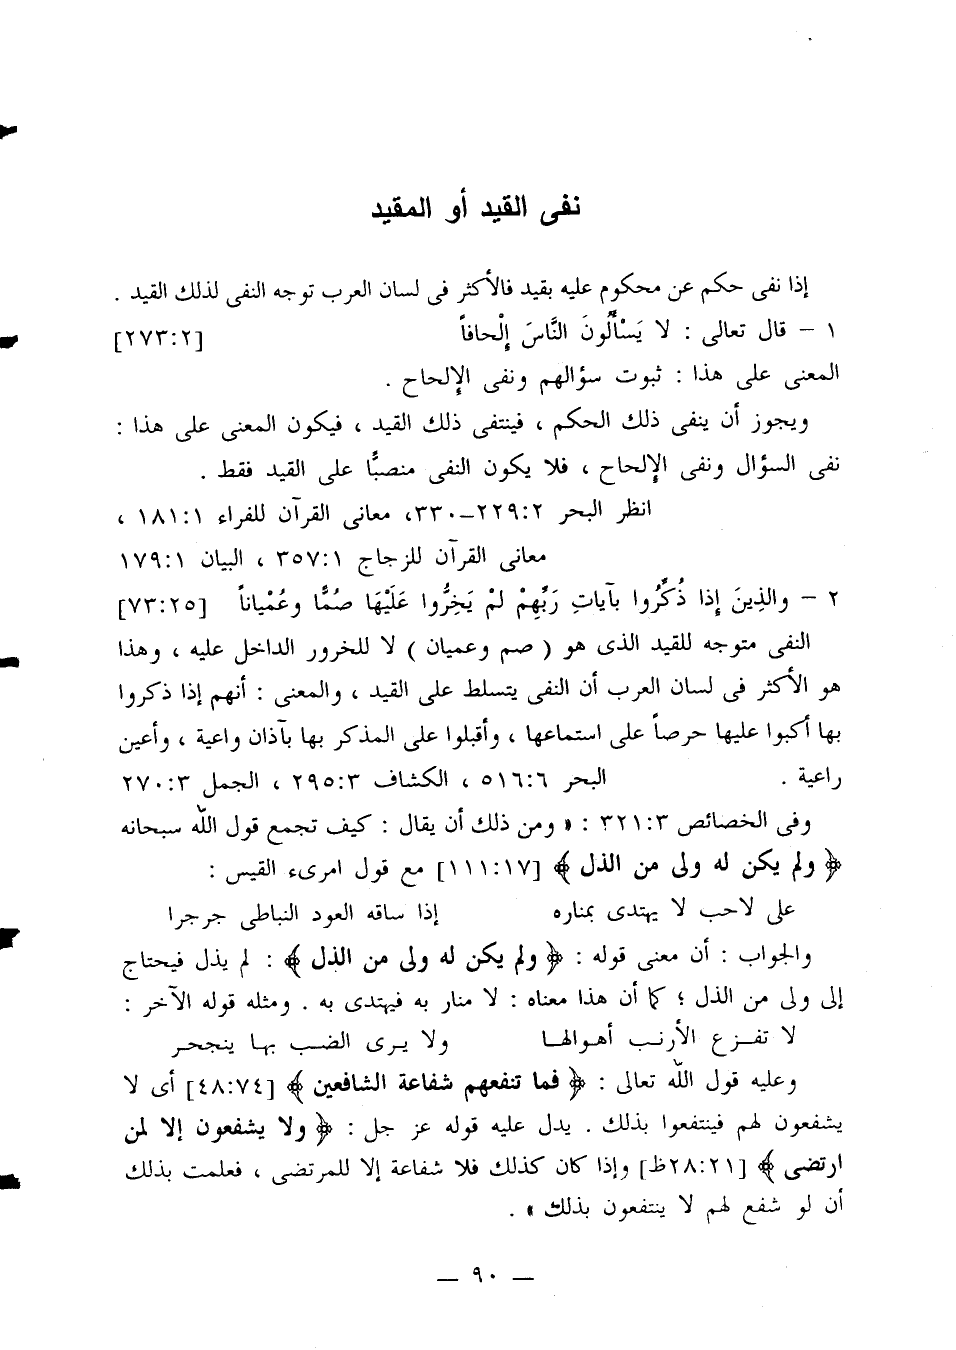 نفى القيد أو المقيد
إذا نفى حكم عن محكوم عليه بقيد فالأكثر فى لسان العرب توجه النفى لذلك القيد .
١ – قال تعالى : لا يَسْأَلُونَ النَّاسَ إِلْحافاً [٢٧٣:٢]
المعنى على هذا : ثبوت سؤالهم ونفى الإلحاح .
ويجوز أن ينفى ذلك الحكم ، فينتفى ذلك القيد ، فيكون المعنى على هذا :
نفى السؤال ونفى الإلحاح ، فلا يكون النفى منصبًّا على القيد فقط .
انظر البحر ٢٢٩:٢–٣٣٠، معانى القرآن للفراء ١٨١:١ ،
معانى القرآن للزجاج ٣٥٧:١ ، البيان ١٧٩:١
٢ – والذِينَ إِذا ذُكِّرُوا بآياتِ رَبِّهِمْ لمْ يَخِرُّوا عَلَيْهَا صُمًّا وعُمْياناً [٧٣:٢٥]
النفى متوجه للقيد الذى هو ( صم وعميان ) لا للخرور الداخل عليه ، وهذا
هو الأكثر فى لسان العرب أن النفى يتسلط على القيد ، والمعنى : أنهم إذا ذكروا
بها أكبوا عليها حرصاً على استماعها ، وأقبلوا على المذكر بها بآذان واعية ، وأعين
راعية . البحر ٥١٦:٦ ، الكشاف ٢٩٥:٣ ، الجمل ٢٧٠:٣
وفى الخصائص ٣٢١:٣ : « ومن ذلك أن يقال : كيف تجمع قول الله سبحانه
﴿ ولم يكن له ولى من الذل ﴾ [١١١:١٧] مع قول امرىء القيس :
على لاحب لا يهتدى بمناره إذا ساقه العود النباطى جرجرا
والجواب : أن معنى قوله : ﴿ ولم يكن له ولى من الذل ﴾ : لم يذل فيحتاج
إلى ولى من الذل ؛ كما أن هذا معناه : لا منار به فيهتدى به . ومثله قوله الآخر :
لا تفـزع الأرنـب أهـوالهـا ولا يـرى الضـب بهـا ينجحـر
وعليه قول الله تعالى : ﴿ فما تنفعهم شفاعة الشافعين ﴾ [٤٨:٧٤] أى لا
يشفعون لهم فينتفعوا بذلك . يدل عليه قوله عز جل : ﴿ ولا يشفعون إلا لمن
ارتضى ﴾ [٢٨:٢١ظ] وإذا كان كذلك فلا شفاعة إلا للمرتضى ، فعلمت بذلك
أن لو شفع لهم لا ينتفعون بذلك » .
— ٩٠ —